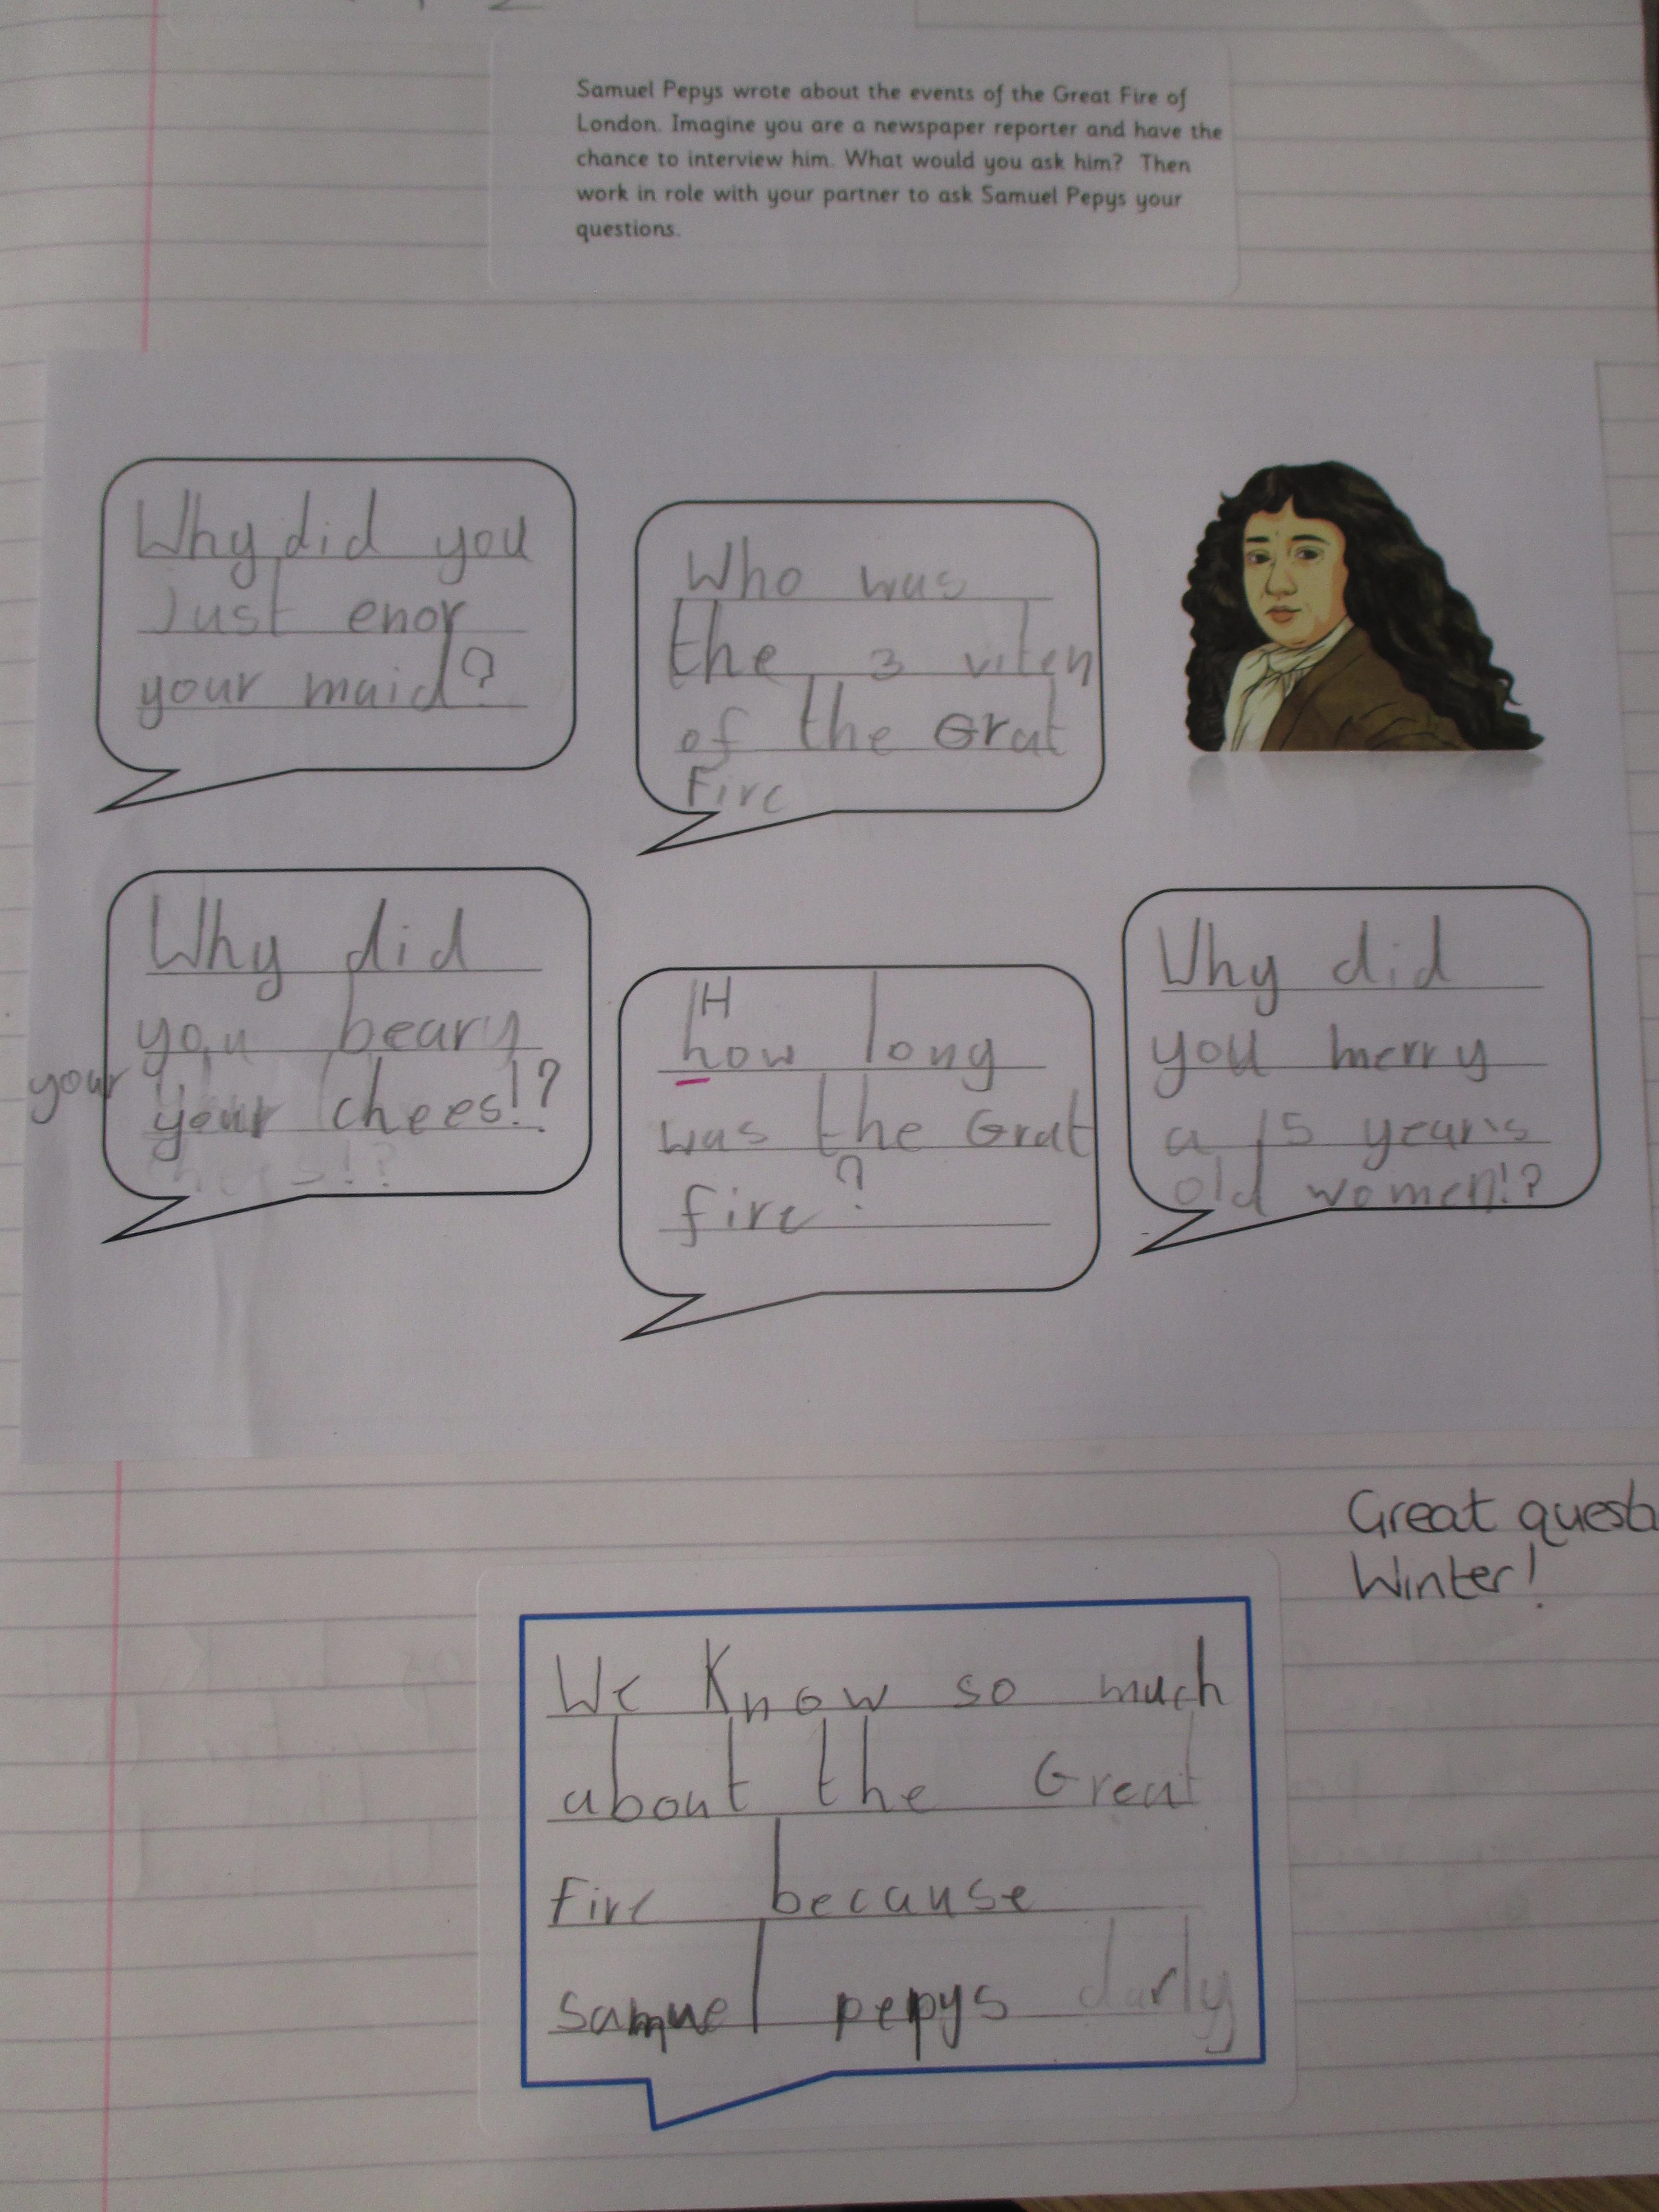 Samuel Pepys wrote about the events of the Great Fire of
London. Imagine you are a newspaper reporter and have the
chance to interview him. What would you ask him? Then
work in role with your partner to ask Samuel Pepys your
questions.
Why did you
Just enor
your maid?
Who was
the 3 viten
of the Grat
Fire
Why did
you beary
your your chees!?
chees!?
H
how long
was the Grat
fire?
Why did
you merry
a 15 year's
old women!?
Great quest
Winter!
We Know so much
about the Great
Fire because
samuel pepys darly